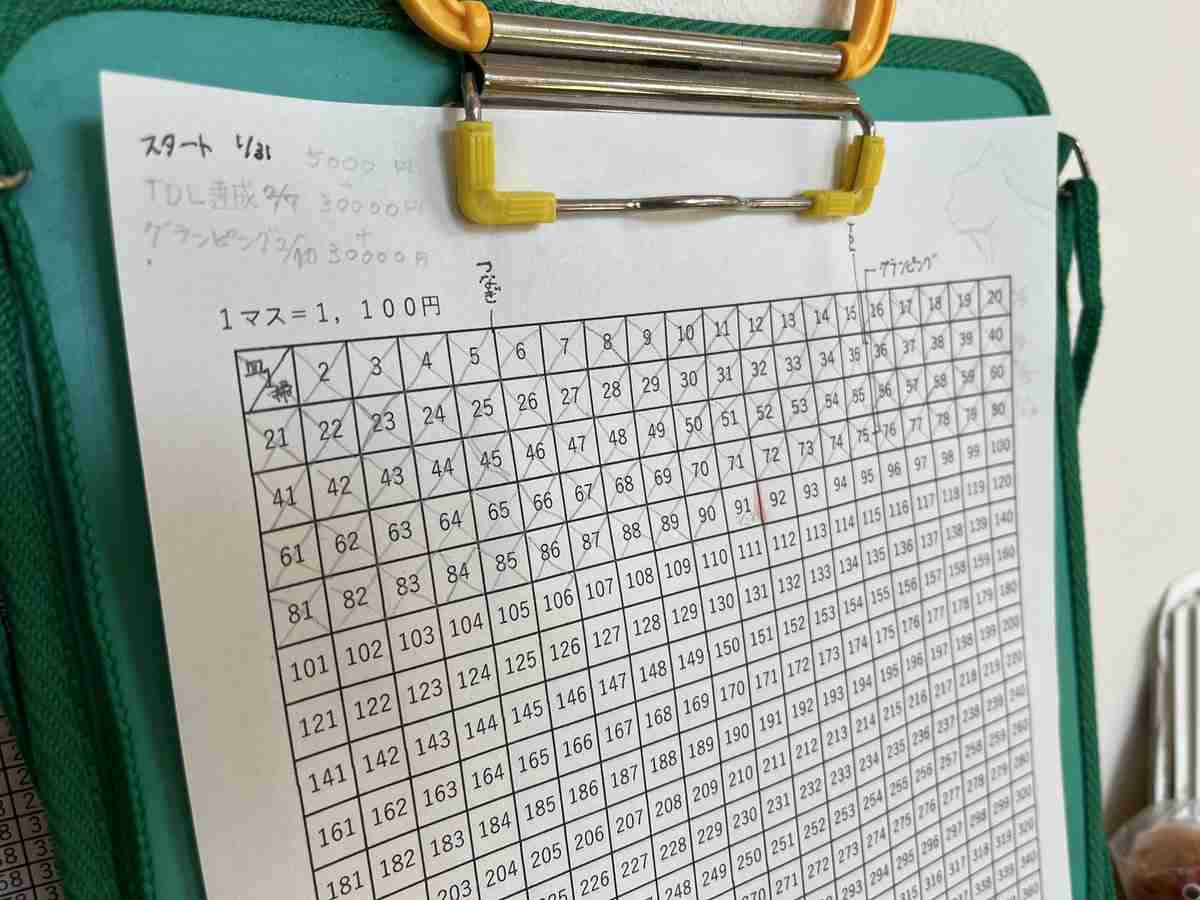 スタート 1/31 5000円
TDL達成 2/7 30000円
グランピング 2/10 30000円
+
つなぎ
グランピング
1マス=1,100円
1 2 3 4 5 6 7 8 9 10 11 12 13 14 15 16 17 18 19 20
21 22 23 24 25 26 27 28 29 30 31 32 33 34 35 36 37 38 39 40
41 42 43 44 45 46 47 48 49 50 51 52 53 54 55 56 57 58 59 60
61 62 63 64 65 66 67 68 69 70 71 72 73 74 75 76 77 78 79 80
81 82 83 84 85 86 87 88 89 90 91 92 93 94 95 96 97 98 99 100
101 102 103 104 105 106 107 108 109 110 111 112 113 114 115 116 117 118 119 120
121 122 123 124 125 126 127 128 129 130 131 132 133 134 135 136 137 138 139 140
141 142 143 144 145 146 147 148 149 150 151 152 153 154 155 156 157 158 159 160
161 162 163 164 165 166 167 168 169 170 171 172 173 174 175 176 177 178 179 180
181 182 183 184 185 186 187 188 189 190 191 192 193 194 195 196 197 198 199 200
203 204 205 206 207 208 209 210 211 212 213 214 215 216 217 218 219 220
225 226 227 228 229 230 231 232 233 234 235 236 237 238 239 240
248 249 250 251 252 253 254 255 256 257 258 259 260
270 271 272 273 274 275 276 277 278 279 280
293 294 295 296 297 298 299 300
315 316 317 318 319 320
338 339 340
360